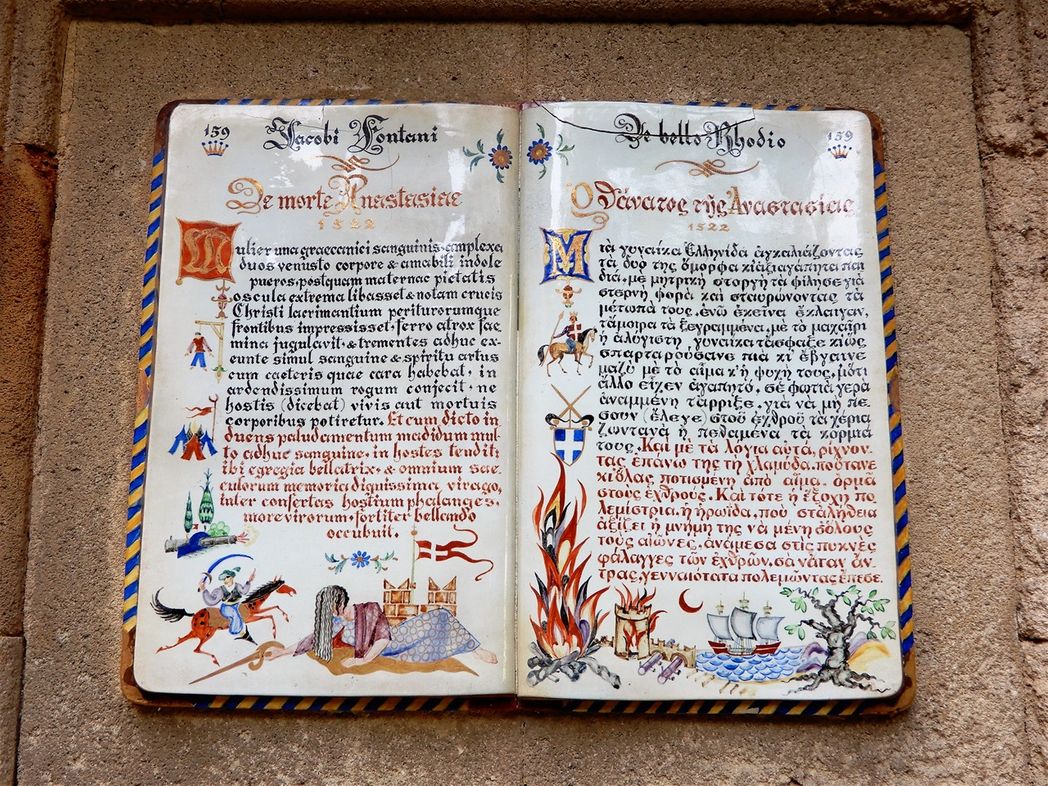 159
Jacobi Fontani
De morte Anastasiae
1522
Mulier una graecanici sanguinis amplexa
duos venusto corpore & amabili indole
pueros, postquam maternae pietatis
oscula extrema libasset & notam crucis
Christi lacrimantium periturorumque
frontibus impressisset, ferro atrox fae-
mina jugulavit & trementes adhuc ex-
eunte simul sanguine & spiritu artus
cum caeteris quae cara habebat, in
ardendissimum rogum confecit, ne
hostis (dicebat) vivis aut mortuis
corporibus potiretur. Et cum dicto in
duens paludamentum madidum mul-
to adhuc sanguine, in hostes tendit:
ibi egregia bellatrix, & omnium sae-
culorum memoria dignissima virago,
inter confertas hostium phalanges,
more virorum, fortiter bellando
occubuit.
De bello Rhodio
159
Ὁ θάνατος τῆς Ἀναστασίας
1522
Μιὰ γυναίκα Ἑλληνίδα ἀγκαλιάζοντας
τὰ δυό της, ὄμορφα κι ἀξιαγάπητα παι
διά, μὲ μητρικὴ στοργὴ τὰ φίλησε γιὰ
στερνὴ φορὰ καὶ σταυρώνοντας τὰ
μέτωπά τους, ἐνῶ ἐκεῖνα ἔκλαιγαν,
τἄμοιρα τὰ ξεγραμμένα, μὲ τὸ μαχαίρι
ἡ ἀλύγιστη γυναίκα τἄσφαξε κι ὡς
σπαρταρούσανε πιὰ κι ἔβγαινε
μαζὺ μὲ τὸ αἷμα κ' ἡ ψυχή τους, μ' ὅτι
ἄλλο εἶχεν ἀγαπητό, σὲ φωτιὰ γερὰ
ἀναμμένη τἄρριξε, γιὰ νὰ μὴ πέ-
σουν (ἔλεγε) στοῦ ἐχθροῦ τὰ χέρια
ζωντανὰ ἢ πεθαμένα τὰ κορμιά
τους. Καὶ μὲ τὰ λόγια αὐτά, ρίχνον-
τας ἐπάνω της τὴ χλαμύδα, ποὔτανε
κιόλας ποτισμένη ἀπὸ αἷμα, ὁρμᾶ
στοὺς ἐχθρούς. Καὶ τότε ἡ ἔξοχη πο
λεμίστρια, ἡ ἡρωίδα, ποὺ στ' ἀλήθεια
ἀξίζει ἡ μνήμη της νὰ μένη σ' ὅλους
τοὺς αἰῶνες, ἀνάμεσα στὶς πυκνὲς
φάλαγγες τῶν ἐχθρῶν, σὰ νἄταν ἄν-
τρας, γενναιότατα πολεμῶντας ἔπεσε.